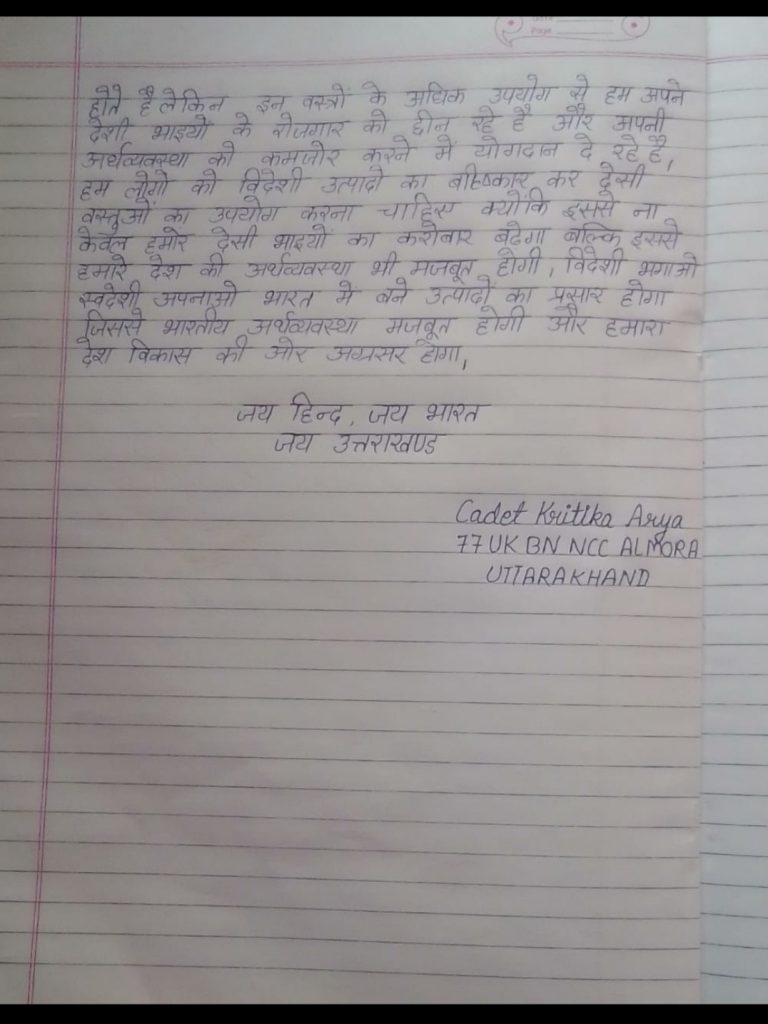 Page
होते है लेकिन इन वस्त्रों के अधिक उपयोग से हम अपने
देशी भाइयों के रोजगार को छीन रहे है और अपनी
अर्थव्यवस्था को कमजोर करने मे योगदान दे रहे है,
हम लोगो को विदेशी उत्पादो का बहिष्कार कर देसी
वस्तुओं का उपयोग करना चाहिए क्योंकि इससे ना
केवल हमारे देसी भाइयों का करोबार बढेगा बल्कि इससे
हमारे देश की अर्थव्यवस्था भी मजबूत होगी, विदेशी भगाओ
स्वदेशी अपनाओ भारत मे बने उत्पादों का प्रसार होगा
जिससे भारतीय अर्थव्यवस्था मजबूत होगी और हमारा
देश विकास की ओर अग्रसर होगा,
जय हिन्द, जय भारत
जय उत्तराखण्ड
Cadet Kritika Arya
77 UK BN NCC ALMORA
UTTARAKHAND